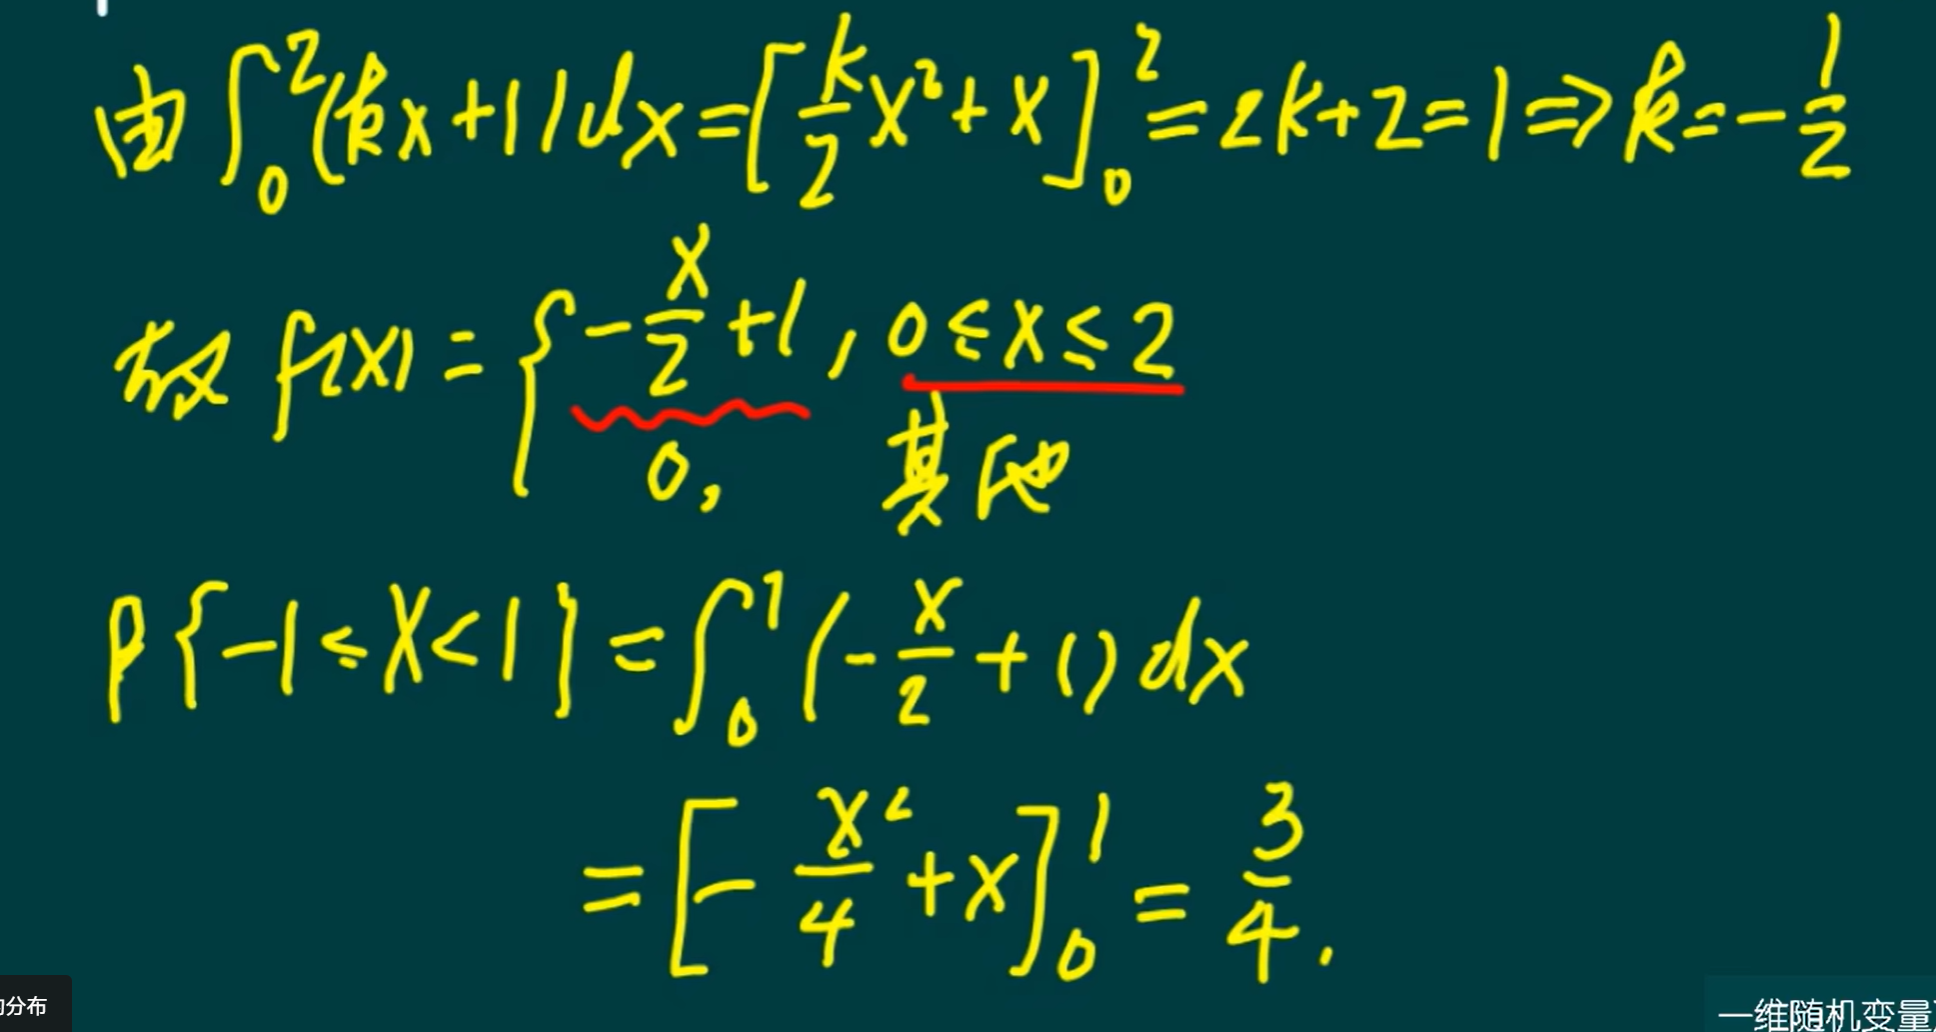 由∫₀²(kx+1)dx=[k/2 x²+x]₀²=2k+2=1⇒k=-1/2
故 f(x)={-x/2+1, 0≤x≤2
0, 其他
P{-1≤X<1}=∫₀¹(-x/2+1)dx
=[-x²/4+x]₀¹=3/4.
分布
一维随机变量